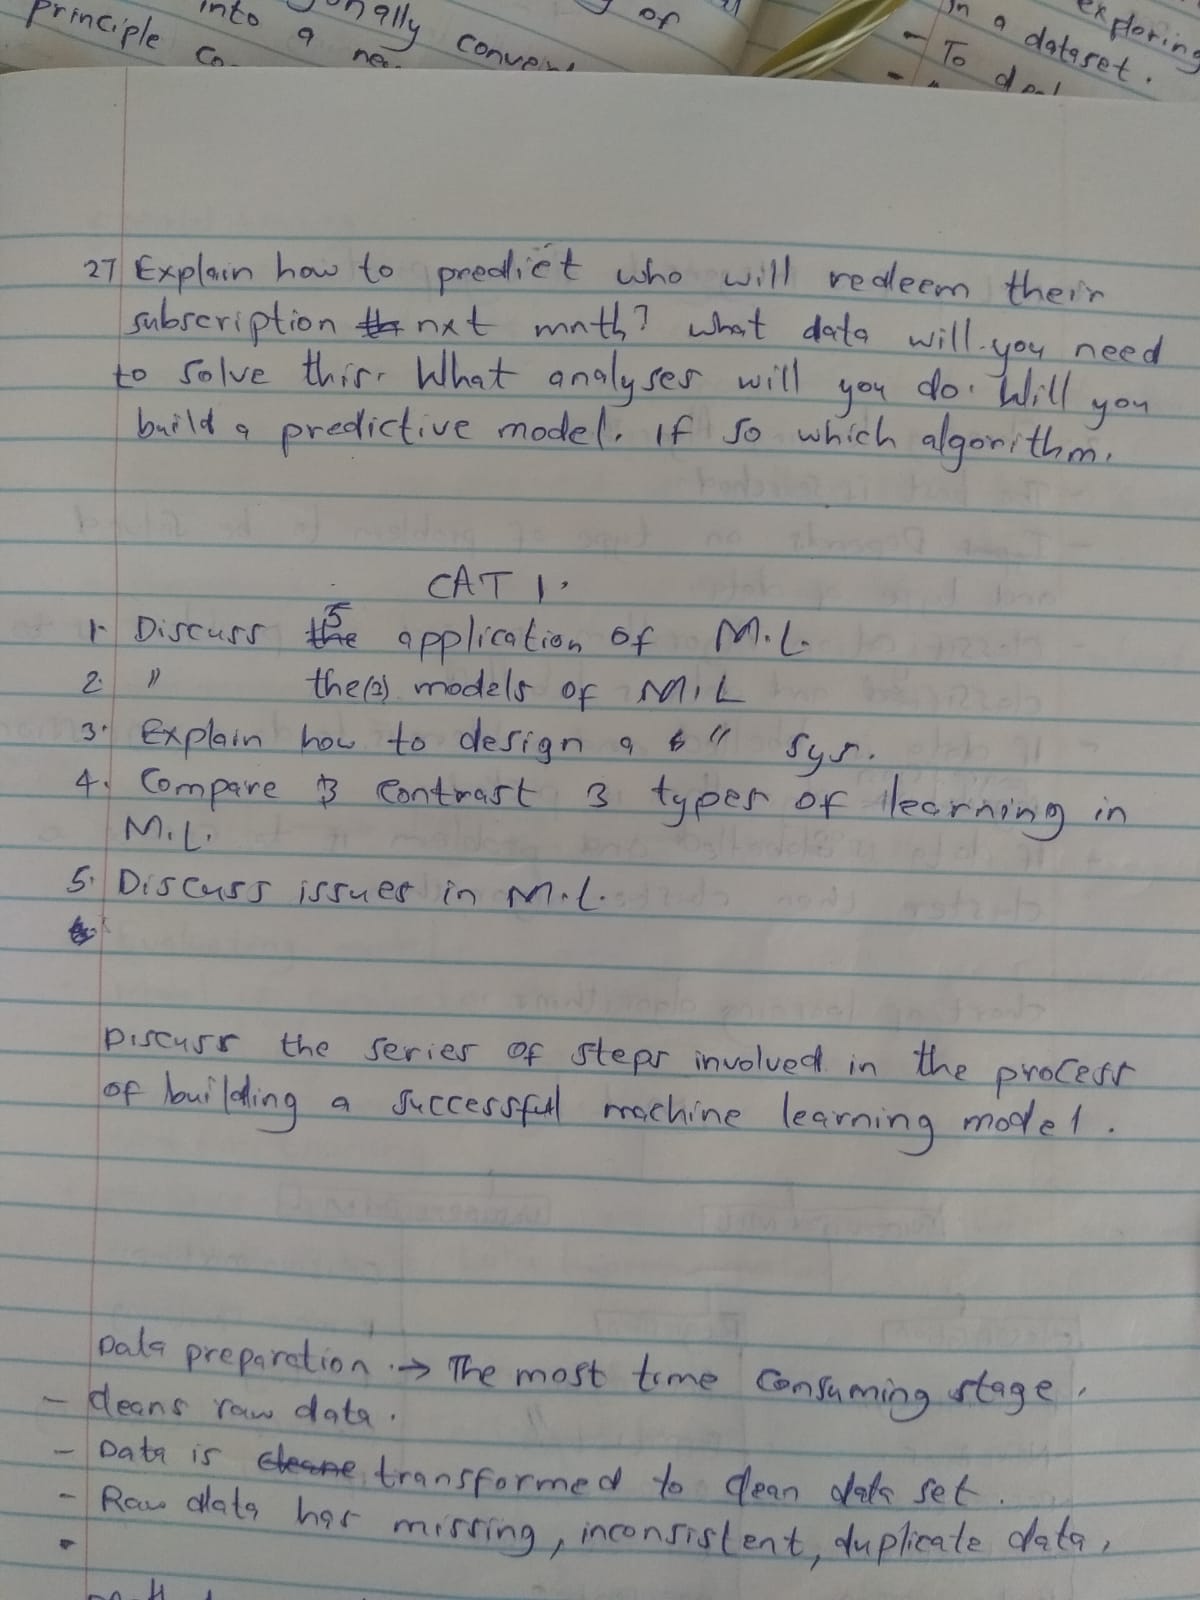 principle
into
a
nally
conven
of
exploring
in a dataset.
- To deal
27 Explain how to predict who will redeem their
subscription nxt mnth? what data will you need
to solve this. What analyses will you do. Will you
build a predictive model. If so which algorithm.
CAT 1.
1. Discuss 5 application of M.L.
2. " the models of M.L
3. Explain how to design a " sys.
4. Compare & Contrast 3 types of learning in
M.L.
5. Discuss issues in M.L.
Discuss the series of steps involved in the process
of building a successful machine learning model.
Data preparation. → The most time consuming stage.
- cleans raw data.
- Data is transformed to clean data set.
- Raw data has missing, inconsistent, duplicate data,